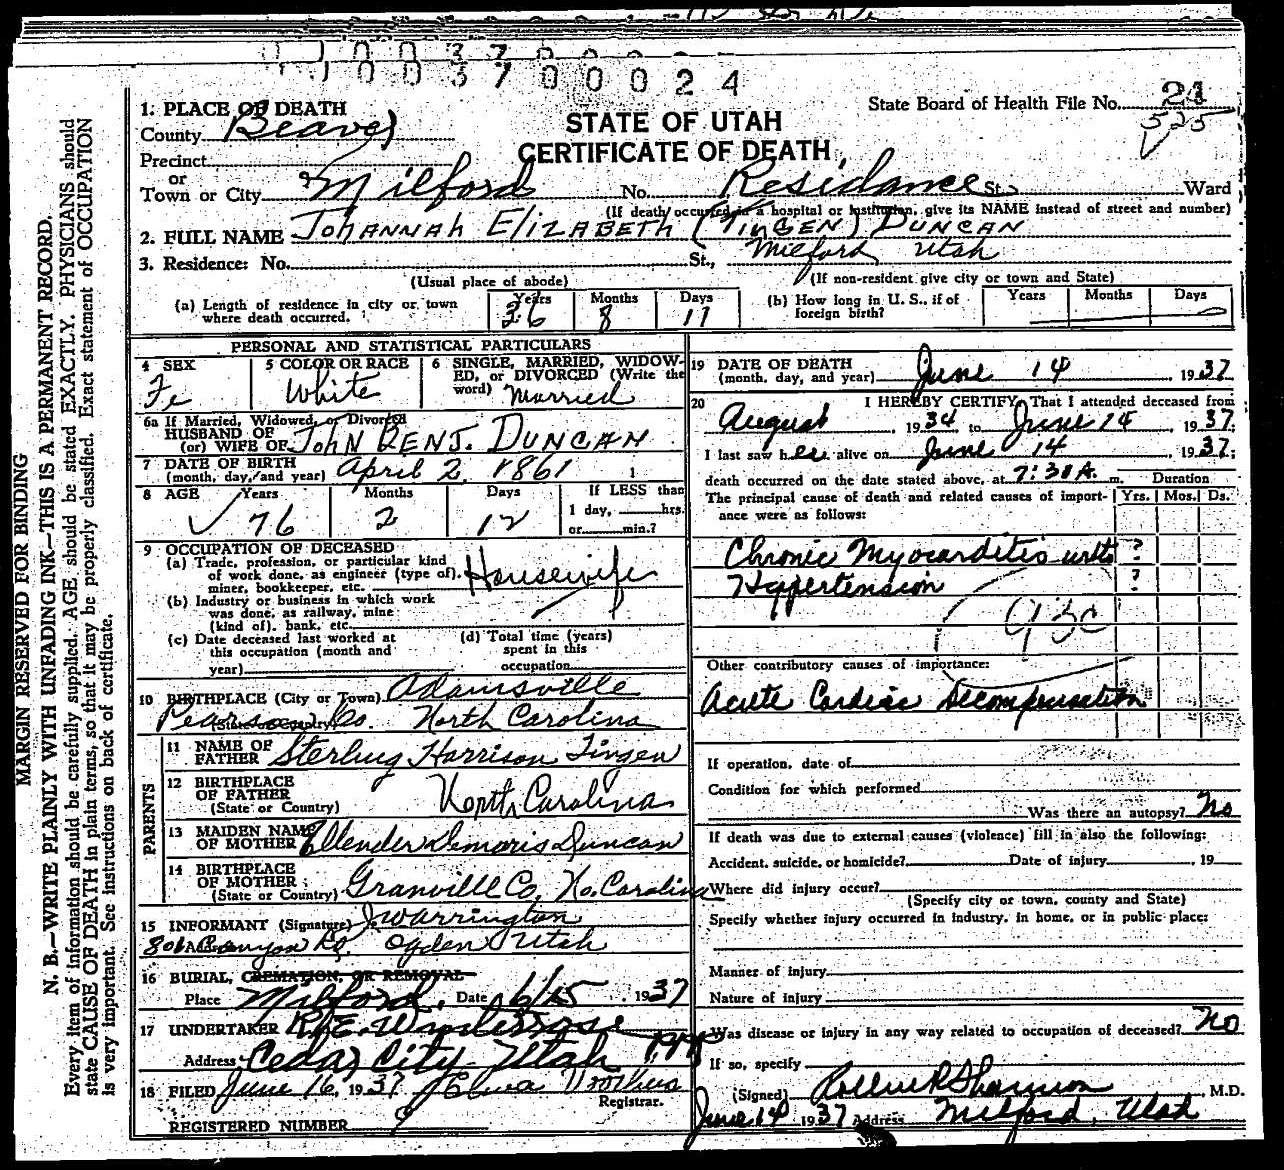 0037000024
State Board of Health File No. 24
525
STATE OF UTAH
CERTIFICATE OF DEATH
1. PLACE OF DEATH
County Beaver
Precinct
or
Town or City Milford No. Residance St., Ward
(If death occurred in a hospital or institution, give its NAME instead of street and number)
2. FULL NAME JOHANNAH ElIZABETH (TINGEN) DUNCAN
3. Residence: No. St., Milford Utah
(Usual place of abode) (If non-resident give city or town and State)
(a) Length of residence in city or town where death occurred. Years 36 Months 8 Days 11
(b) How long in U. S., if of foreign birth? Years Months Days
PERSONAL AND STATISTICAL PARTICULARS
4 SEX Fe
5 COLOR OR RACE White
6 SINGLE, MARRIED, WIDOWED, or DIVORCED (Write the word) Married
6a If Married, Widowed, or Divorced
HUSBAND OF
(or) WIFE OF JOHN BENJ. DUNCAN
7 DATE OF BIRTH
(month, day, and year) April 2, 1861
8 AGE Years 76 Months 2 Days 12
If LESS than 1 day, hrs. or min.?
9 OCCUPATION OF DECEASED
(a) Trade, profession, or particular kind of work done, as engineer (type of), miner, bookkeeper, etc. Housewife
(b) Industry or business in which work was done, as railway, mine (kind of), bank, etc.
(c) Date deceased last worked at this occupation (month and year)
(d) Total time (years) spent in this occupation
10 BIRTHPLACE (City or Town) Adamsville
Pearson Co. North Carolina
PARENTS
11 NAME OF FATHER Sterling Harrison Tingen
12 BIRTHPLACE OF FATHER
(State or Country) North Carolina
13 MAIDEN NAME OF MOTHER Ellender Demaris Duncan
14 BIRTHPLACE OF MOTHER
(State or Country) Granville Co, No. Carolina
15 INFORMANT (Signature) J. Warrington
Canyon Rd. Ogden Utah
16 BURIAL, CREMATION, OR REMOVAL
Place Milford. Date 6/15 1937
17 UNDERTAKER
Address Cedar City Utah
18 FILED June 16, 1937
Registrar.
REGISTERED NUMBER 9
19 DATE OF DEATH
(month, day, and year) June 14, 1937
20 I HEREBY CERTIFY, That I attended deceased from
August, 1934, to June 14, 1937;
I last saw her alive on June 14, 1937;
death occurred on the date stated above, at 7:30 A. m. Duration
The principal cause of death and related causes of importance were as follows: Yrs. Mos. Ds.
Chronic Myocarditis with ?
Hypertension ?
93c
Other contributory causes of importance:
Acute Cardiac Decompensation
If operation, date of
Condition for which performed
Was there an autopsy? No
If death was due to external causes (violence) fill in also the following:
Accident, suicide, or homicide? Date of injury , 19
Where did injury occur?
(Specify city or town, county and State)
Specify whether injury occurred in industry, in home, or in public place:
Manner of injury
Nature of injury
Was disease or injury in any way related to occupation of deceased? No
If so, specify
(Signed) , M.D.
June 14 1937 Address Milford, Utah
MARGIN RESERVED FOR BINDING
N. B.—WRITE PLAINLY WITH UNFADING INK—THIS IS A PERMANENT RECORD.
Every item of information should be carefully supplied. AGE should be stated EXACTLY. PHYSICIANS should
state CAUSE OF DEATH in plain terms, so that it may be properly classified. Exact statement of OCCUPATION
is very important. See instructions on back of certificate.